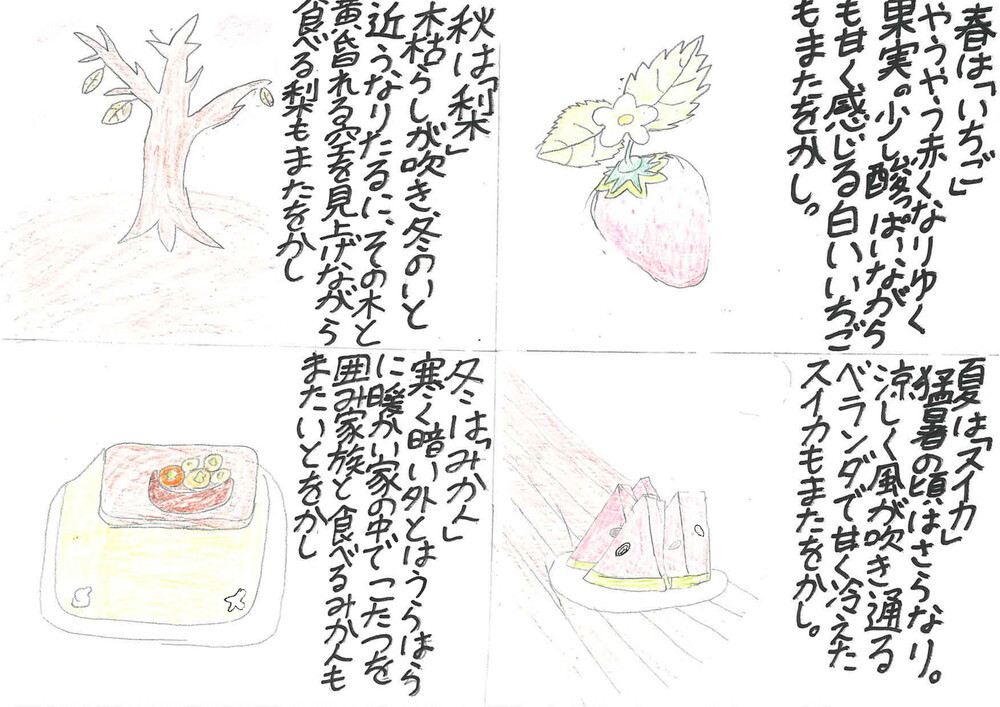 春は「いちご」
やうやう赤くなりゆく
果実の少し酸っぱいながら
も甘く感じる白いいちご
もまたをかし。
夏は「スイカ」
猛暑の頃はさらなり。
涼しく風が吹き通る
ベランダで甘く冷えた
スイカもまたをかし。
秋は「梨」
木枯らしが吹き、冬のいと
近うなりたるに、その木と
黄昏れる空を見上げながら
食べる梨もまたをかし
冬は「みかん」
寒く暗い外とはうらはら
に暖かい家の中でこたつを
囲み家族と食べるみかんも
またいとをかし